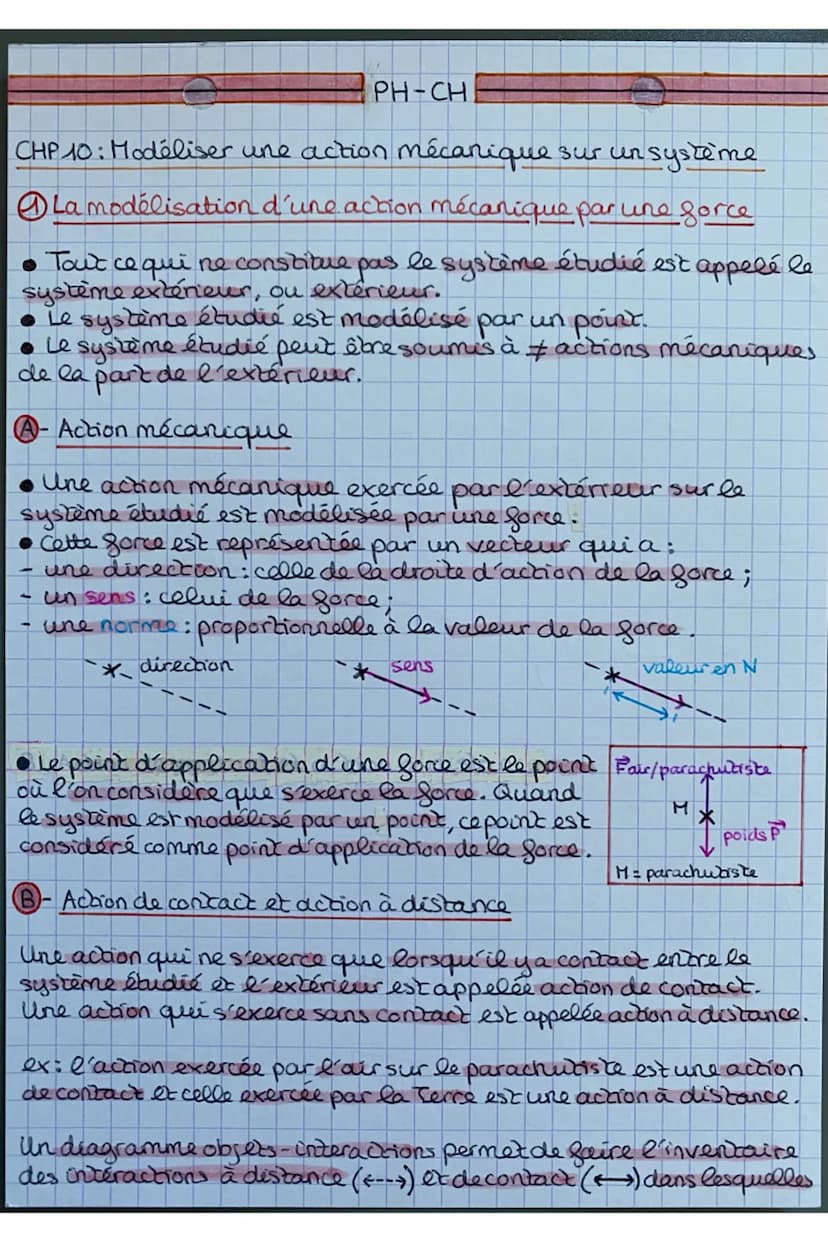 PH-CH
CHP 10 : Modéliser une action mécanique sur un système
① La modélisation d'une action mécanique par une force
• Tout ce qui ne constitue pas le système étudié est appelé le
système extérieur, ou extérieur.
• Le système étudié est modélisé par un point.
• Le système étudié peut être soumis à ≠ actions mécaniques
de la part de l'extérieur.
A- Action mécanique
• Une action mécanique exercée par l'extérieur sur le
système étudié est modélisée par une force.
• Cette force est représentée par un vecteur qui a :
- une direction : celle de la droite d'action de la force ;
- un sens : celui de la force ;
- une norme : proportionnelle à la valeur de la force.
direction
sens
valeur en N
• Le point d'application d'une force est le point
où l'on considère que s'exerce la force. Quand
le système est modélisé par un point, ce point est
considéré comme point d'application de la force.
F⃗air/parachutiste
M
poids P⃗
M = parachutiste
B- Action de contact et action à distance
Une action qui ne s'exerce que lorsqu'il y a contact entre le
système étudié et l'extérieur est appelée action de contact.
Une action qui s'exerce sans contact est appelée action à distance.
ex : l'action exercée par l'air sur le parachutiste est une action
de contact et celle exercée par la Terre est une action à distance.
Un diagramme objets-interactions permet de faire l'inventaire
des interactions à distance (<--->) et de contact (<—>) dans lesquelles